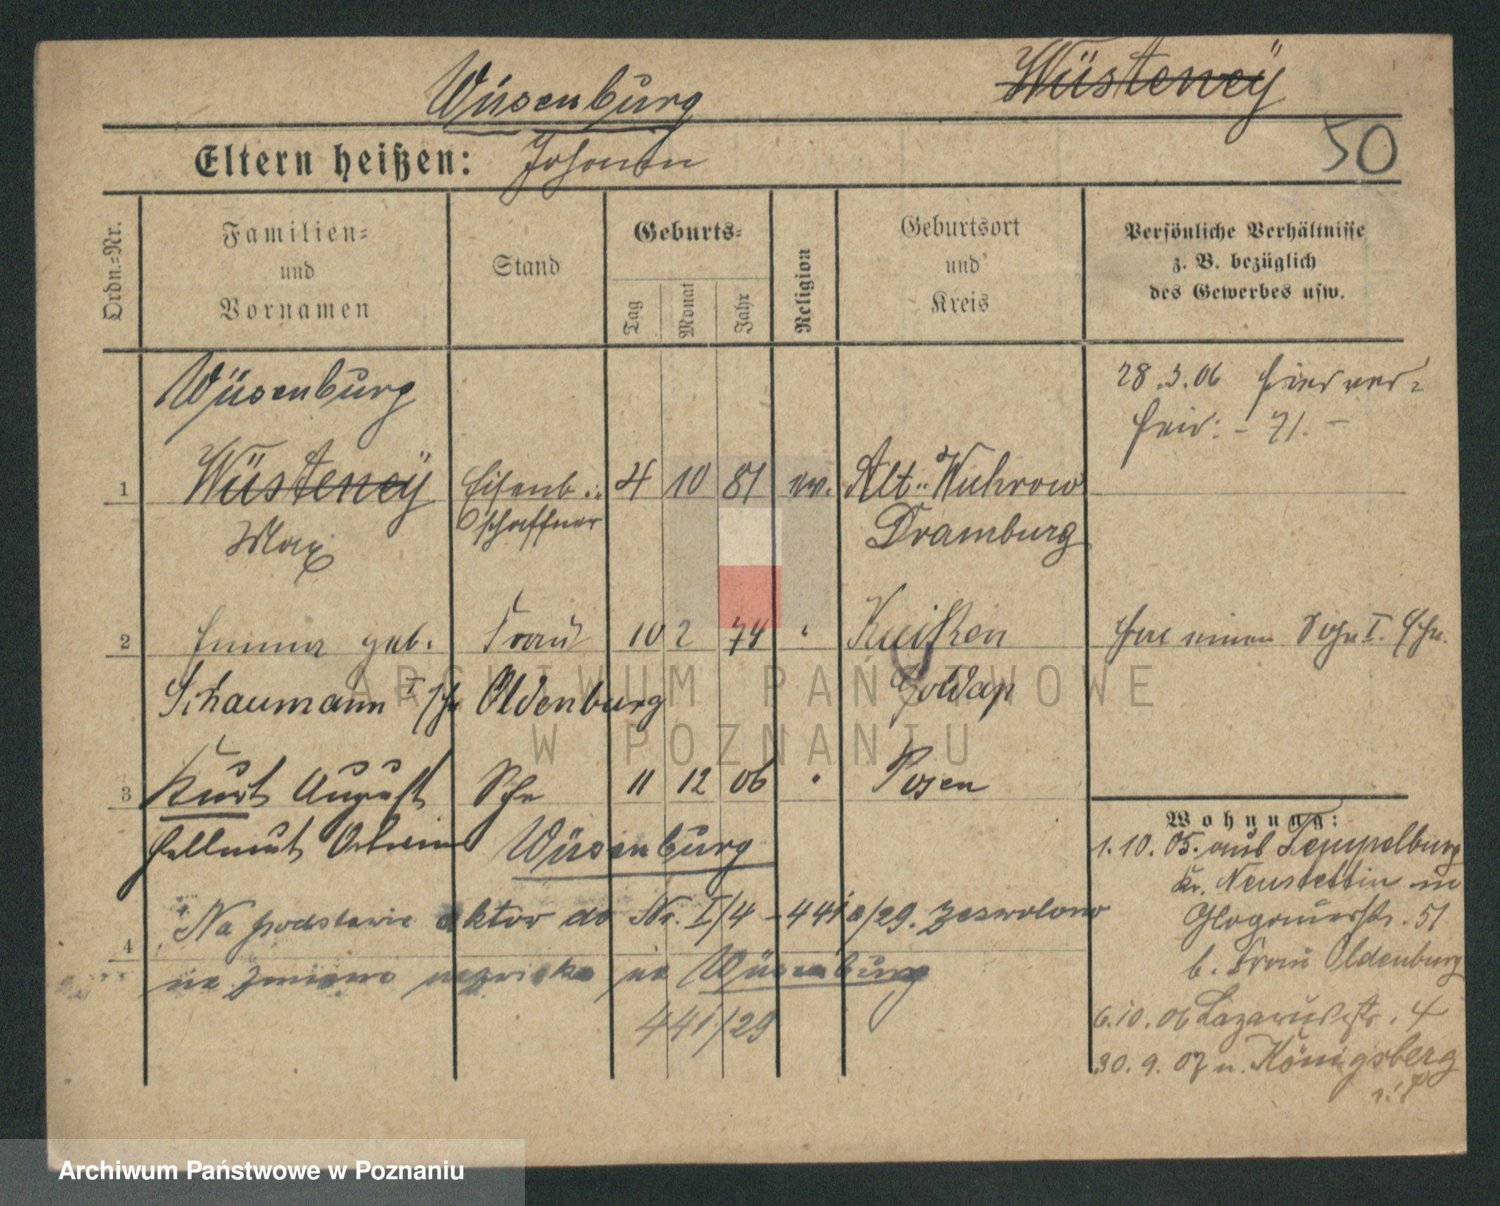 Wüsenburg Wüsteney
Eltern heißen: Johann 50
Ordn.-Nr.
Familien-
und
Vornamen
Stand
Geburts-
Tag Monat Jahr
Religion
Geburtsort
und
Kreis
Persönliche Verhältnisse
z. B. bezüglich
des Gewerbes usw.
Wüsenburg
28.3.06 hier ver-
heir: - 71. -
1 Wüsteney Eisenb.- 4 10 81 ev. Alt-Wuhrow
Max schaffner Dramburg
2 Emma geb. Frau 10 2 74 " Kuiken
Schaumann I Oldenburg Goldap
Hat einen Sohn I.
3 Kurt August Sohn 11 12 06 " Posen
Hellmut Wüsenburg
Na podstawie aktów do Nr. I/4 - 441 /29. zezwolono
4 na zmianę nazwiska na Wüsenburg
441/29
Wohnung:
1.10.05. aus Tempelburg
Kr. Neustettin in
Glogauerstr. 51
b. Frau Oldenburg
6.10.06 Lazarusstr. 4
30.9.07 n. Königsberg
i. P
ARCHIWUM PAŃSTWOWE
W POZNANIU
Archiwum Państwowe w Poznaniu